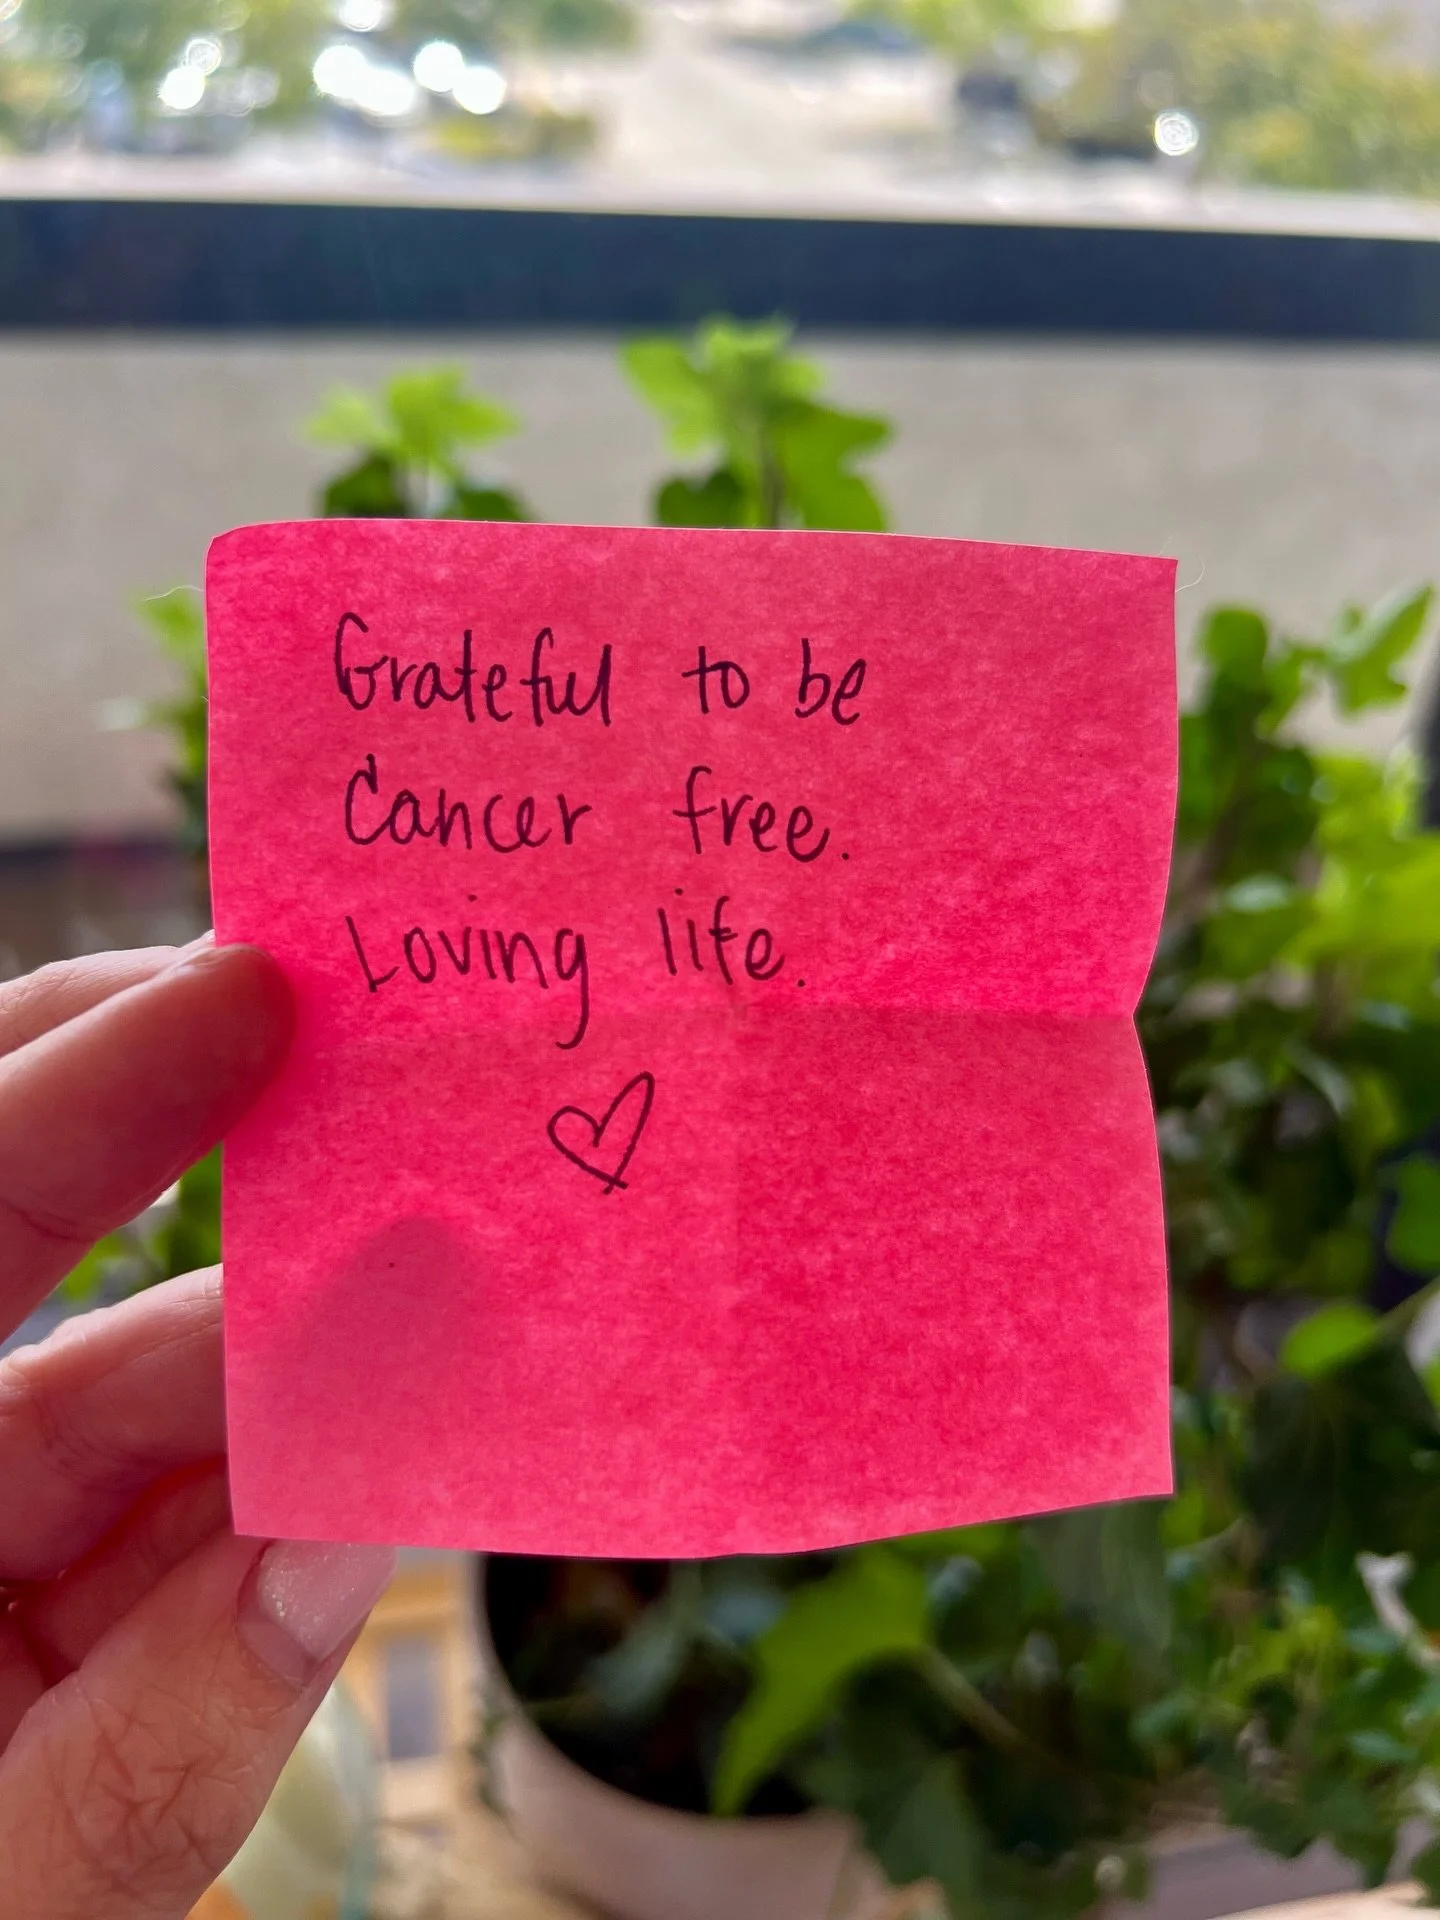 Grateful to be
Cancer free.
Loving life.